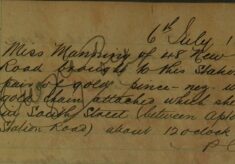 6th July 1
Miss Manning of 48 New
Road brought to this Station
pair of gold pince-nez w
gold chain attached which she
in South Street (between
Station Road) about 12 o'clock
P.C